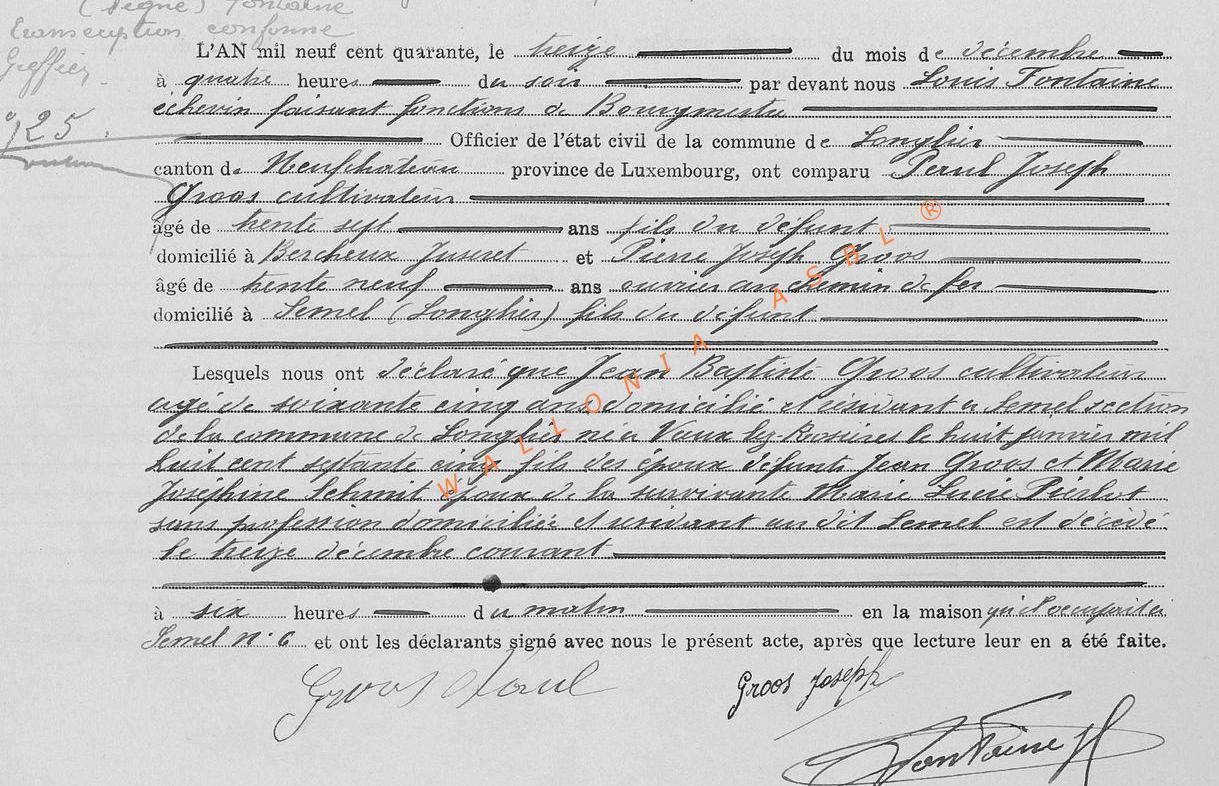 (Signé) Fontaine
Transcription conforme
Greffier
925
L'AN mil neuf cent quarante, le treize du mois de décembre
à quatre heures du soir par devant nous Louis Fontaine
échevin faisant fonctions de Bourgmestre
Officier de l'état civil de la commune de Longlier
canton de Neufchateau province de Luxembourg, ont comparu Paul Joseph
Groos cultivateur
âgé de trente sept ans fils du défunt
domicilié à Bercheux Juseret et Pierre Joseph Groos
âgé de trente neuf ans ouvrier au chemin de fer
domicilié à Semel (Longlier) fils du défunt
Lesquels nous ont déclaré que Jean Baptiste Groos cultivateur
agé de soixante cinq ans domicilié et résidant à Semel section
de la commune de Longlier né à Vaux lez-Rosières le huit janvier mil
huit cent septante cinq fils des époux défunts Jean Groos et Marie
Joséphine Schmit époux de la survivante Marie Lucie Pierlot
sans profession domiciliée et résidant au dit Semel est décédé
le treize décembre courant
à six heures du matin en la maison qu'il occupait à
Semel n° 6 et ont les déclarants signé avec nous le présent acte, après que lecture leur en a été faite.
Groos Paul Groos Joseph
Fontaine
WALLONIA ASBL ®